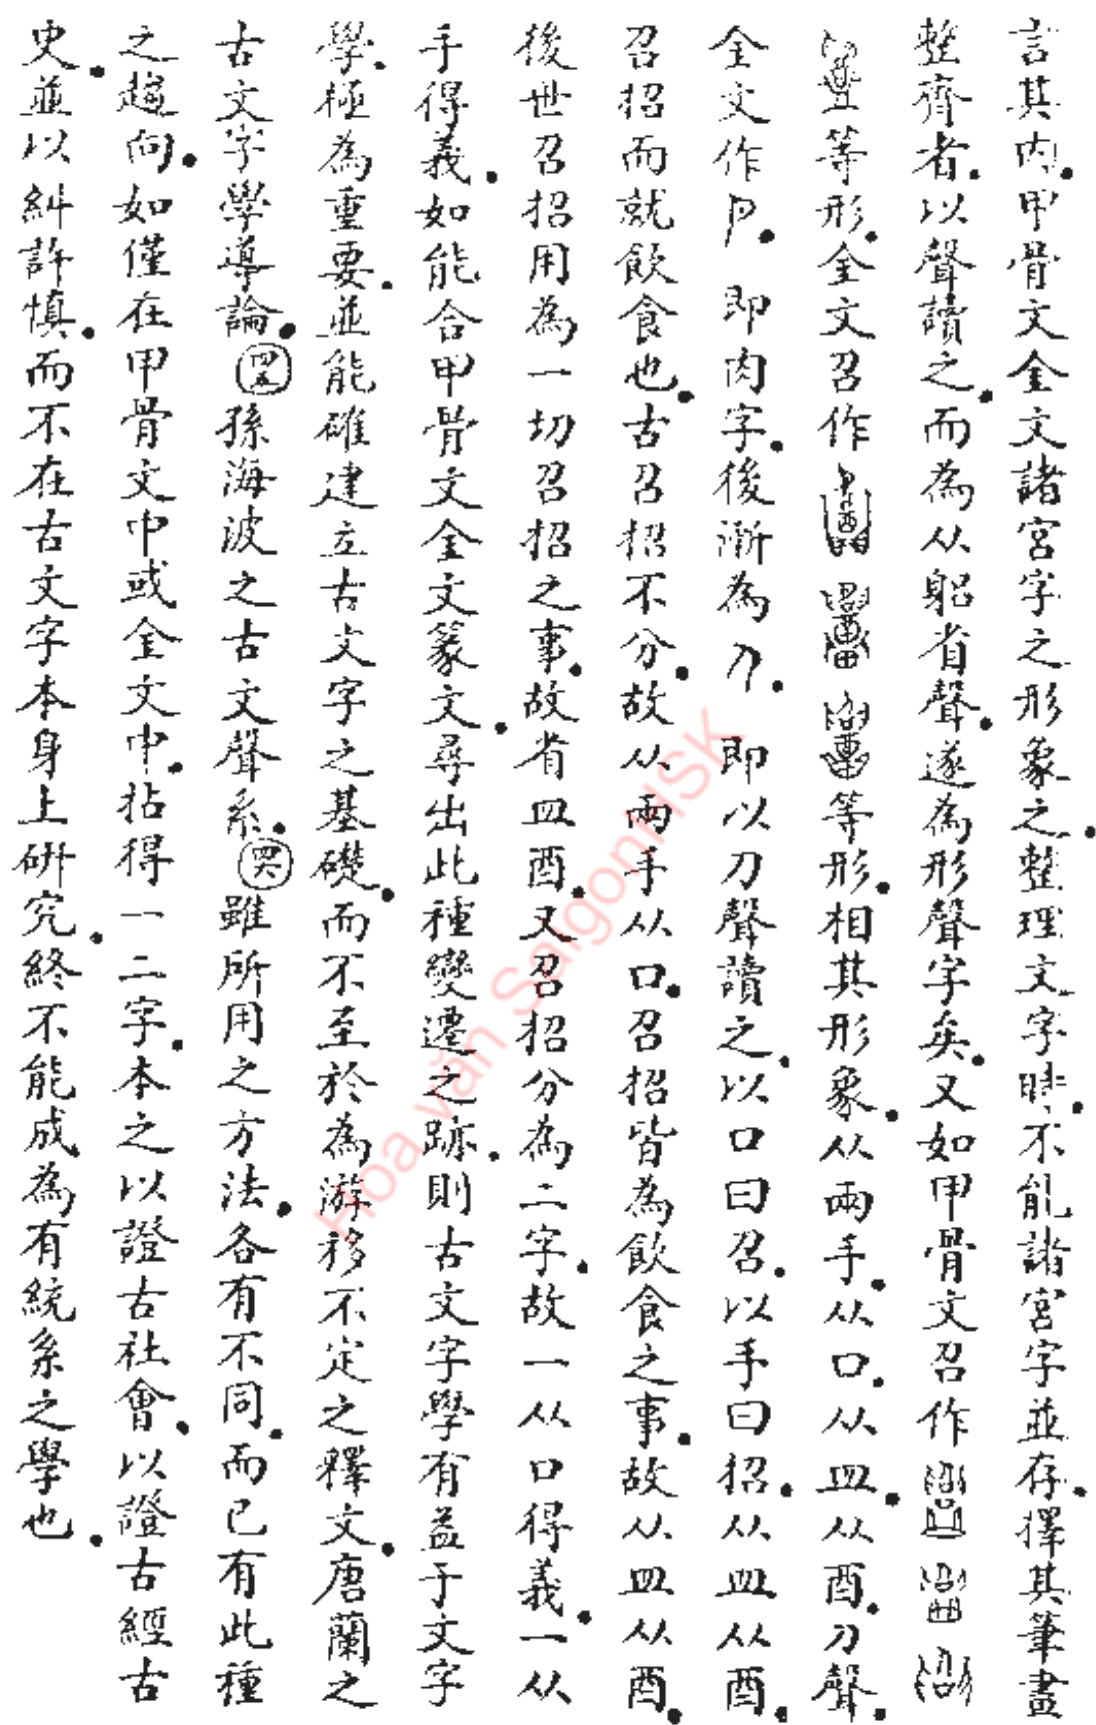 言其内。甲骨文金文諸宮字之形象之。整理文字時。不能諸宮字並存。擇其筆畫
整齊者。以聲讀之。而為从躳省聲。遂為形聲字矣。又如甲骨文召作
等形。金文召作等形。相其形象。从兩手。从口。从皿。从酉。刀聲。
金文作。即肉字。後漸為。即以刀聲讀之。以口曰召。以手曰招。从皿从酉。
召招而就飲食也。古召招不分。故从兩手从口。召招皆為飲食之事。故从皿从酉。
後世召招用為一切召招之事。故省皿酉。又召招分為二字。故一从口得義。一从
手得義。如能合甲骨文金文篆文。尋出此種變遷之跡。則古文字學有益于文字
學。極為重要。並能確建立古文字之基礎。而不至於為游移不定之釋文。唐蘭之
古文字學導論。㊺孫海波之古文聲系。㊻雖所用之方法。各有不同。而已有此種
之趨向。如僅在甲骨文中或金文中。拈得一二字。本之以證古社會。以證古經古
史。並以糾許慎。而不在古文字本身上研究。終不能成為有統系之學也。
Hoa văn SaigonHSK